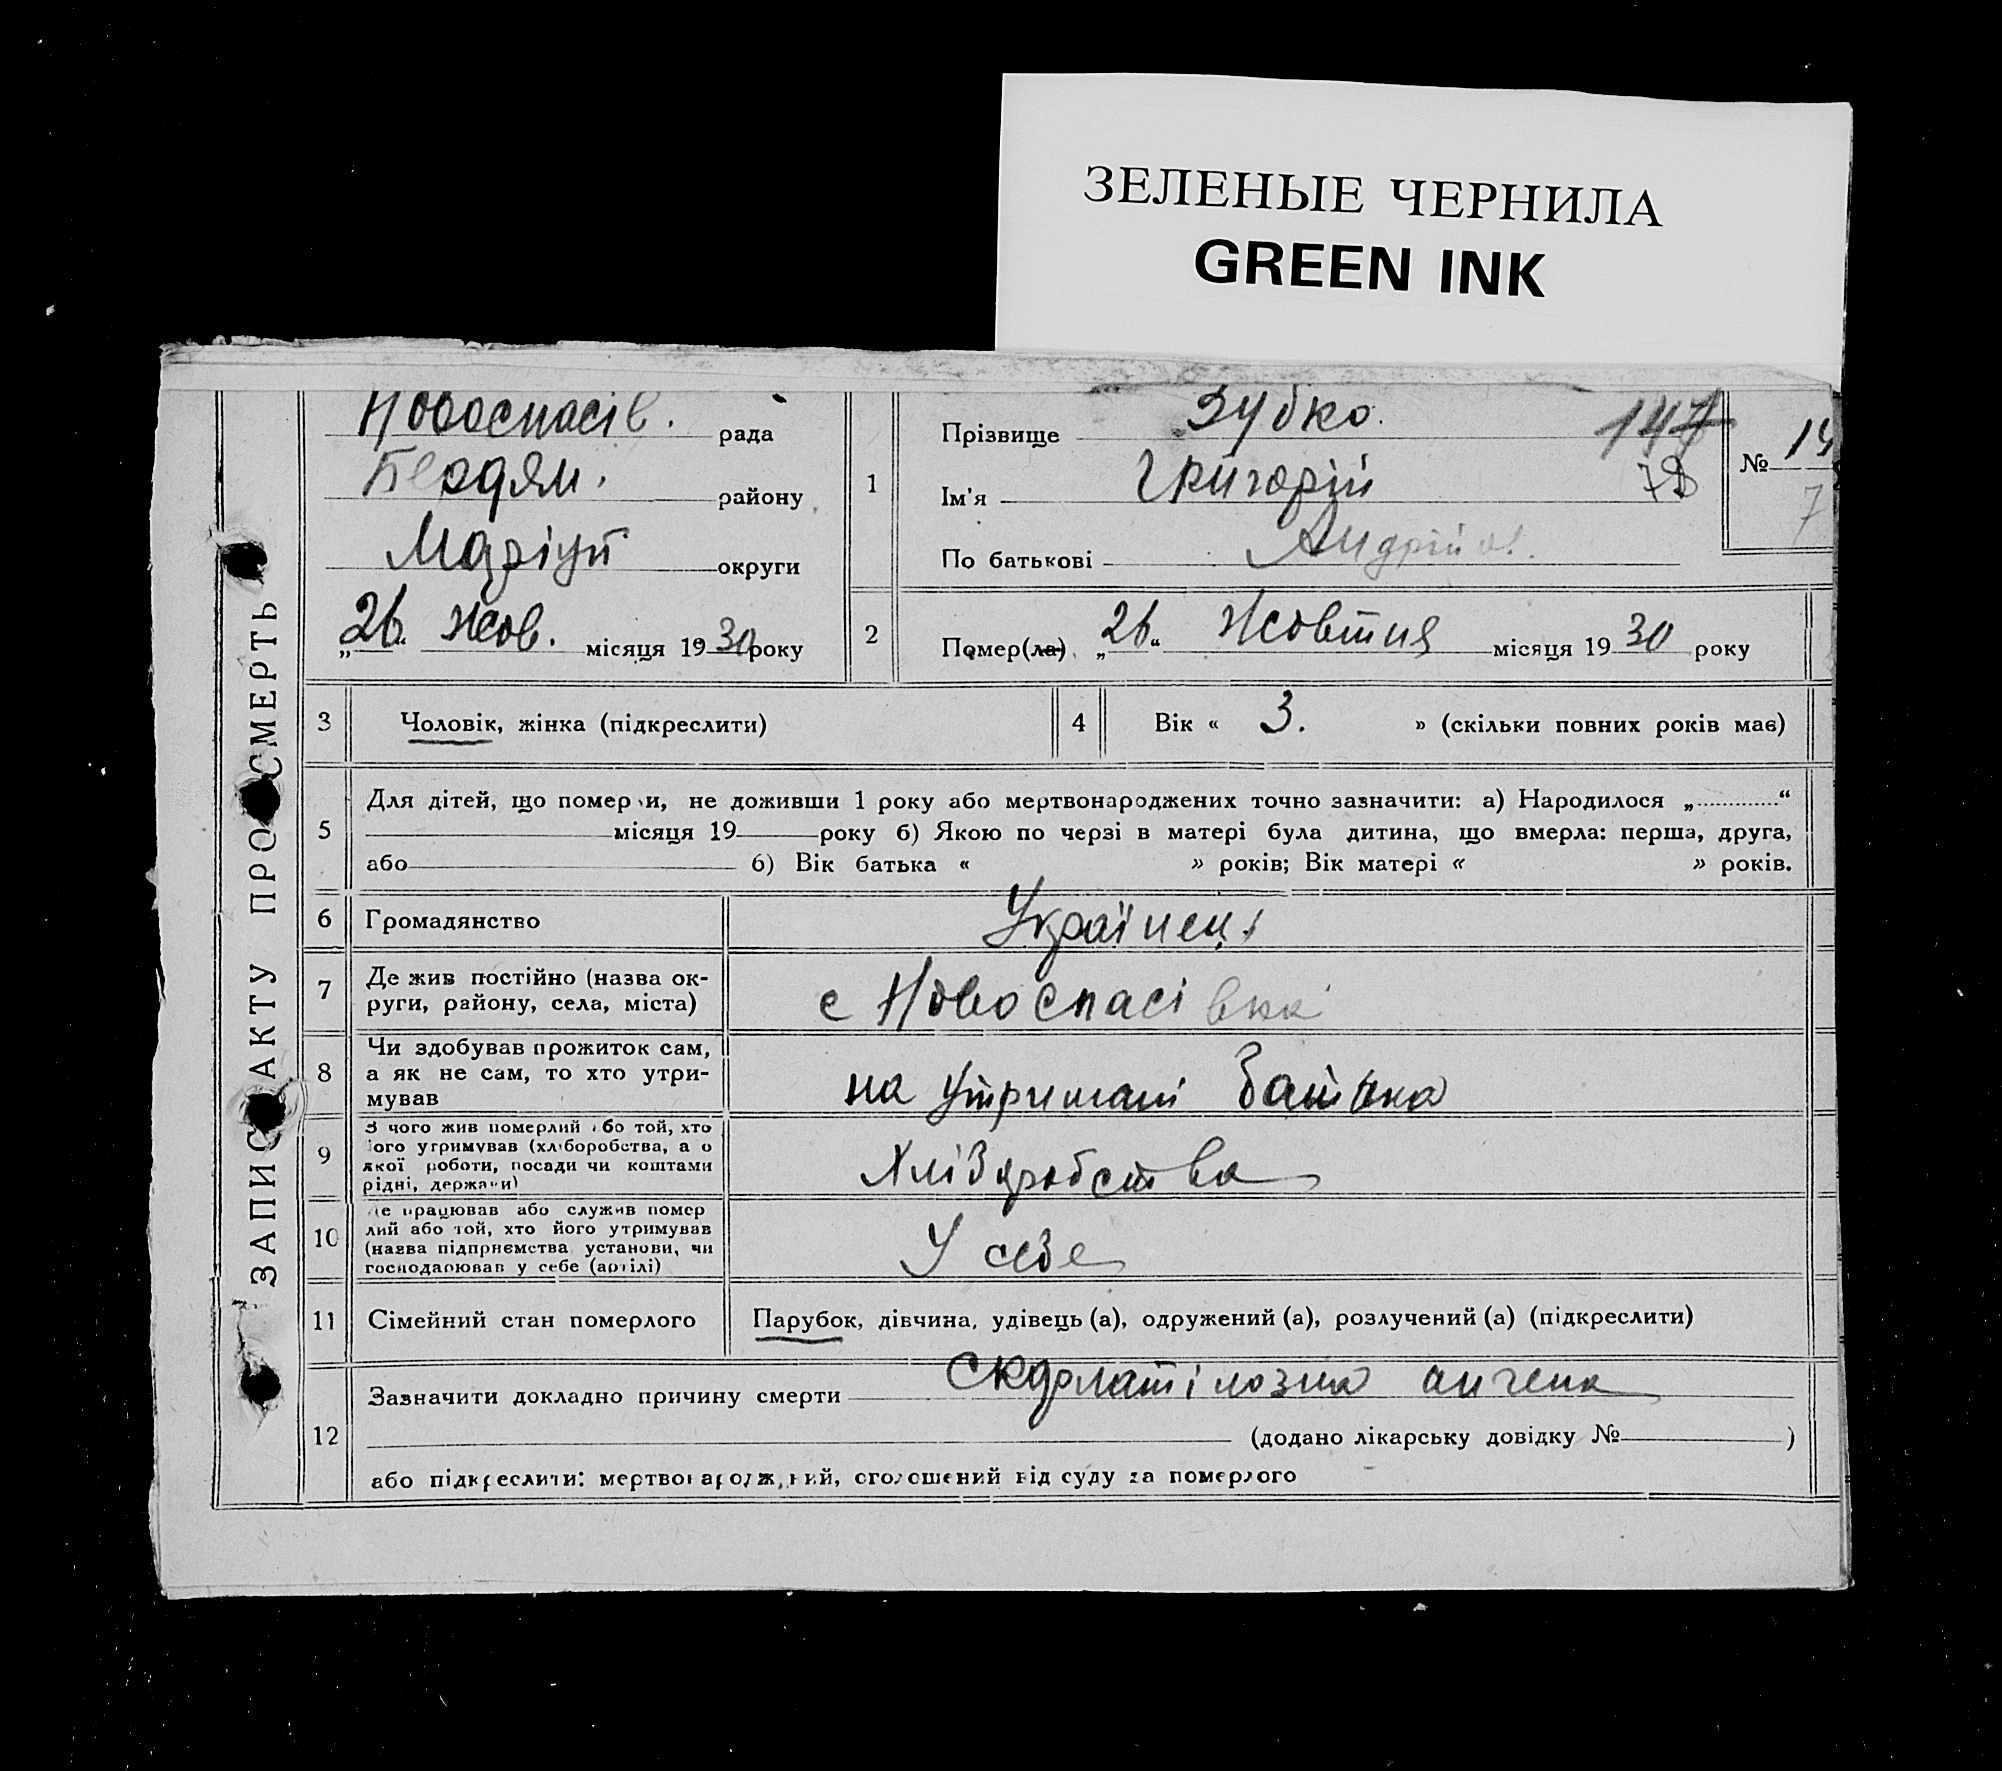 ЗЕЛЕНЫЕ ЧЕРНИЛА
GREEN INK
ЗАПИС АКТУ ПРО СМЕРТЬ
Новоспасів. рада
Бердян. району
Маріуп округи
„26“ Жов. місяця 1930 року
1
Прізвище Зубко.
147
Ім'я Григорій
По батькові Андрійов.
№ 14
7
2
Помер(ла) „26“ Жовтня місяця 1930 року
3 Чоловік, жінка (підкреслити)
4 Вік « 3. » (скільки повних років має)
5
Для дітей, що померли, не доживши 1 року або мертвонароджених точно зазначити: а) Народилося „ “
місяця 19 року б) Якою по черзі в матері була дитина, що вмерла: перша, друга,
або б) Вік батька « » років; Вік матері « » років.
6 Громадянство Українец
7 Де жив постійно (назва ок-
руги, району, села, міста)
с Новоспасівка
8 Чи здобував прожиток сам,
а як не сам, то хто утри-
мував
на утримані батька
9 З чого жив померлий або той, хто
його утримував (хліборобства, а о
якої роботи, посади чи коштами
рідні, держави)
Хліборобства
10 Де працював або служив помер
лий або той, хто його утримував
(назва підприємства установи, чи
господарював у себе (артілі)
У себе
11 Сімейний стан померлого Парубок, дівчина, удівець (а), одружений (а), розлучений (а) (підкреслити)
12
Зазначити докладно причину смерти
(додано лікарську довідку № )
або підкреслити: мертвонароджений, оголошений від суду за померлого